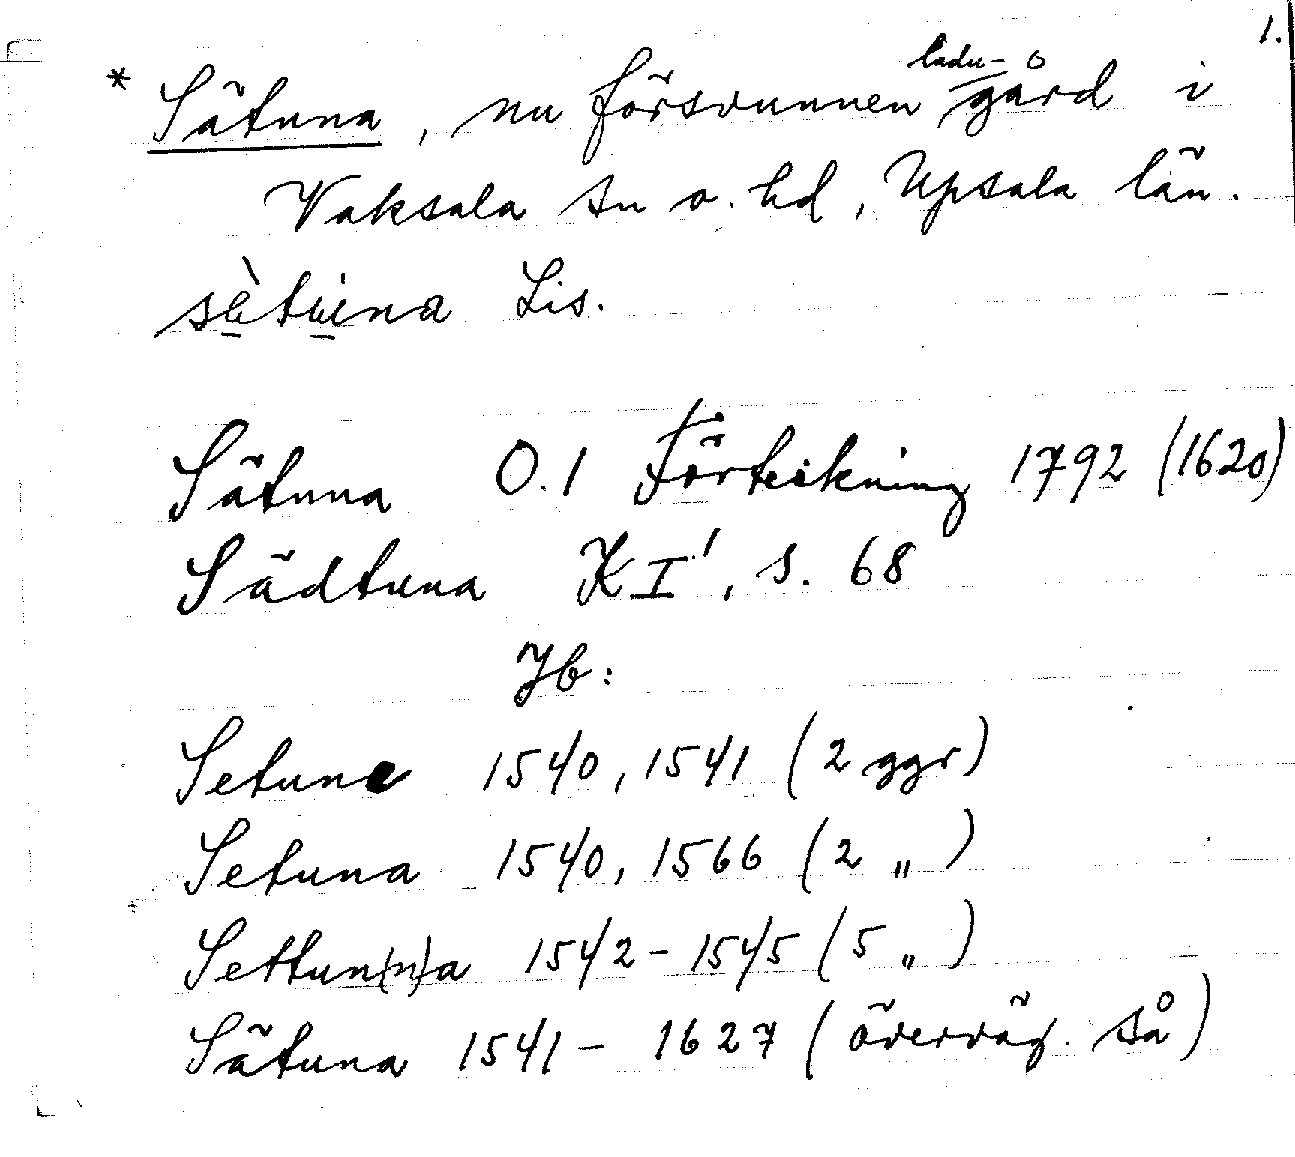 1.
* Sätuna, nu försvunnen ladu-gård i
Vaksala sn o. hd, Upsala län.
Lis.
Sätuna O.1 Förteckning 1792 (1620)
Sädtuna K I¹, s. 68
Jb:
Setune 1540, 1541 (2 ggr)
Setuna 1540, 1566 (2 „ )
Settun(n)a 1542-1545 (5 „ )
Sätuna 1541- 1627 (överväg. så)